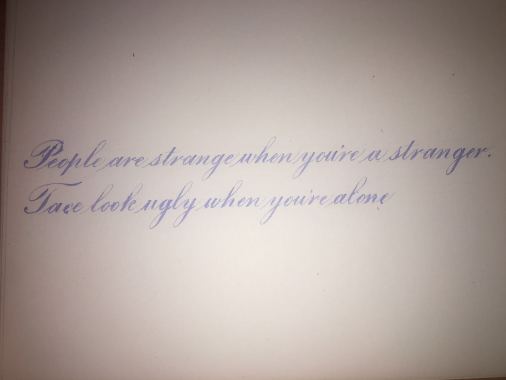 People are strange when you're a stranger.
Face look ugly when you're alone